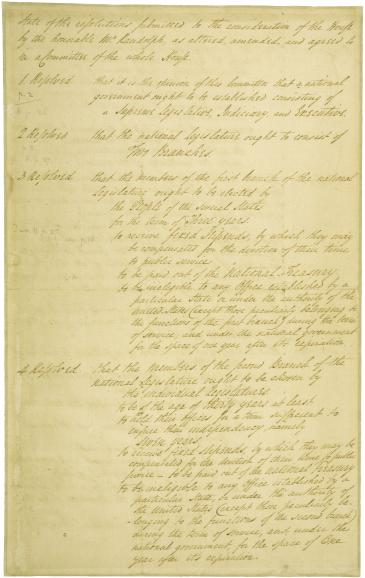 State of the resolutions submitted to the consideration of the House
by the honorable Mr. Randolph, as altered, amended, and agreed to
in a Committee of the whole House.
1 Resolved that it is the opinion of this Committee that a national
government ought to be established consisting of
a Supreme Legislative, Judiciary, and Executive.
2 Resolved that the national Legislature ought to consist of
Two Branches.
3 Resolved that the members of the first branch of the national
Legislature ought to be elected by
the People of the several States
for the term of Three years.
to receive fixed stipends, by which they may
be compensated for the devotion of their time
to public service
to be paid out of the National-Treasury
to be ineligible to any Office established by a
particular State or under the authority of the
United States (except those peculiarly belonging to
the functions of the first branch) during the term
of service, and under the national government
for the space of one year after its expiration.
4 Resolved that the members of the second Branch of the
national Legislature ought to be chosen by
the individual Legislatures.
to be of the age of thirty years at least
to hold their offices for a term sufficient to
ensure their independency, namely
seven years
to receive fixed stipends, by which they may be
compensated for the devotion of their time to public
service - to be paid out of the National Treasury
to be ineligible to any Office established by a
particular State, or under the authority of
the United States (except those peculiarly be-
longing to the functions of the second branch)
during the term of service, and under the
national government, for the space of One
year after its expiration.